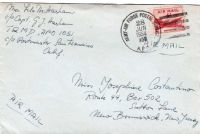 Mrs. Felo M. Harham
c/o Capt. G. J. Harham
The M.P., APO 1051
c/o Postmaster San Francisco
Calif.
AIR FORCE POSTAL
AIR MAIL
Miss Josephine Costantino
Route #4, Box 502
Sutton Lane
New Brunswick, New Jersey
AIR MAIL